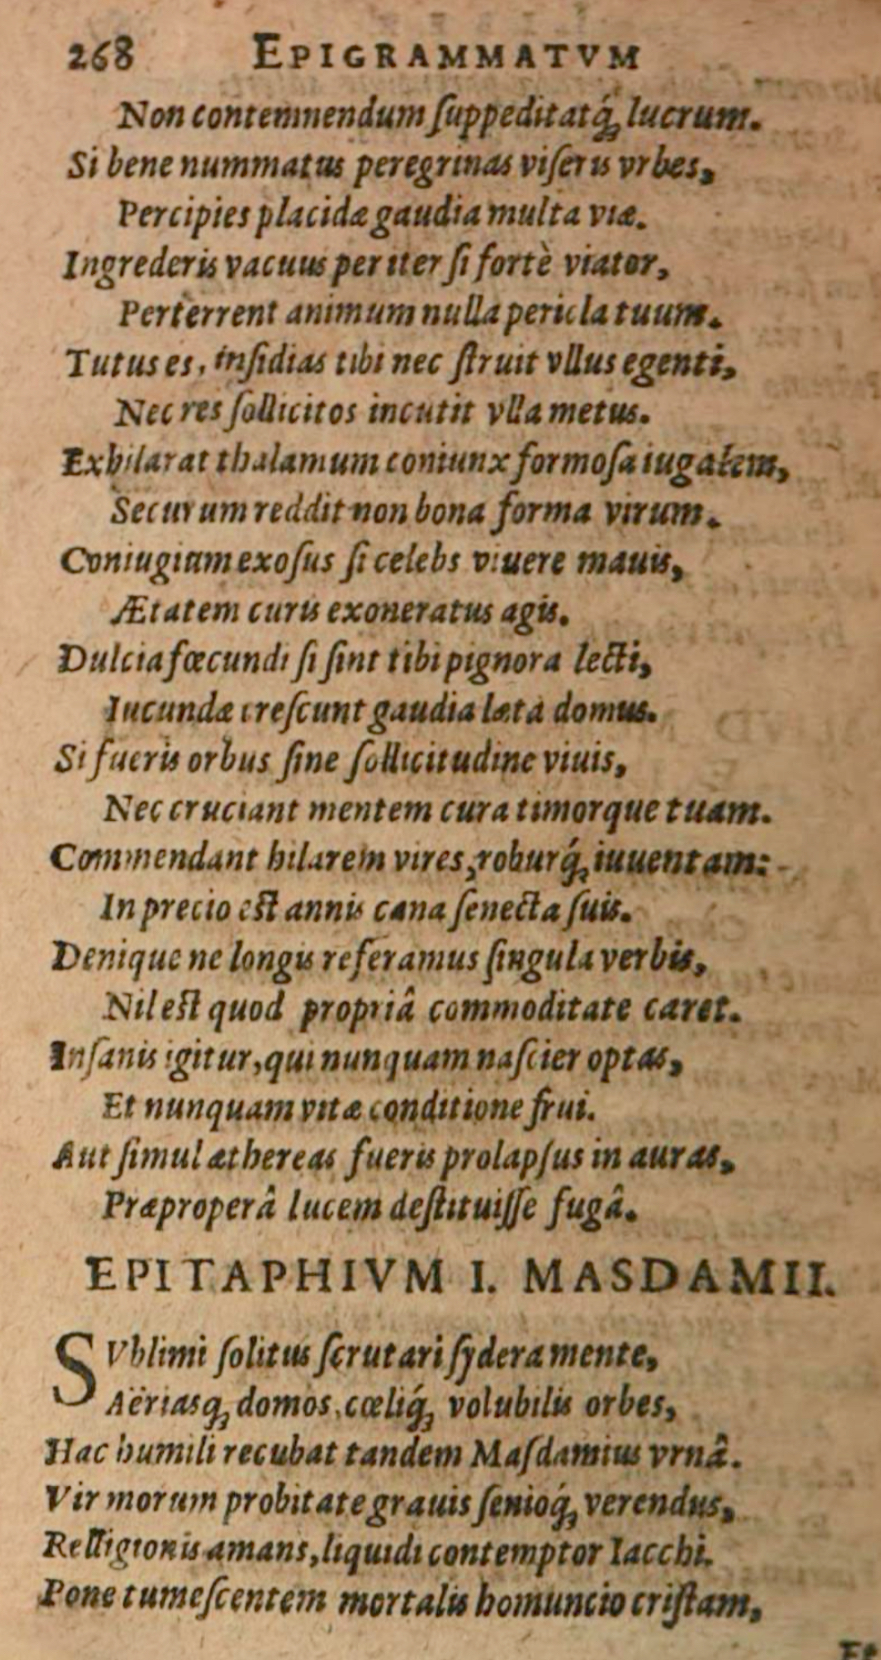 268 EPIGRAMMATVM
Non contemnendum ſuppeditatq́; lucrum.
Si bene nummatus peregrinas viſeris vrbes,
Percipies placidæ gaudia multa viæ.
Ingrederis vacuus per iter ſi fortè viator,
Perterrent animum nulla pericla tuum.
Tutus es, inſidias tibi nec ſtruit vllus egenti,
Nec res ſollicitos incutit vlla metus.
Exhilarat thalamum coniunx formoſa iugalem,
Securum reddit non bona forma virum.
Coniugium exoſus ſi celebs viuere mauis,
Ætatem curis exoneratus agis.
Dulcia fœcundi ſi ſint tibi pignora lecti,
Iucundæ creſcunt gaudia læta domus.
Si fueris orbus ſine ſollicitudine viuis,
Nec cruciant mentem cura timorque tuam.
Commendant hilarem vires, roburq́; iuuentam:
In precio eſt annis cana ſenecta ſuis.
Denique ne longis referamus ſingula verbis,
Nil eſt quod propriâ commoditate caret.
Inſanis igitur, qui nunquam naſcier optas,
Et nunquam vitæ conditione frui.
Aut ſimul æthereas fueris prolapſus in auras,
Præproperâ lucem deſtituiſſe fugâ.
EPITAPHIVM I. MASDAMII.
SVblimi ſolitus ſcrutari ſydera mente,
Aërias q; domos, cœliq́; volubilis orbes,
Hac humili recubat tandem Maſdamius vrnâ.
Vir morum probitate grauis ſenioq́; verendus,
Relligionis amans, liquidi contemptor Iacchi.
Pone tumeſcentem mortalis homuncio criſtam,
Et